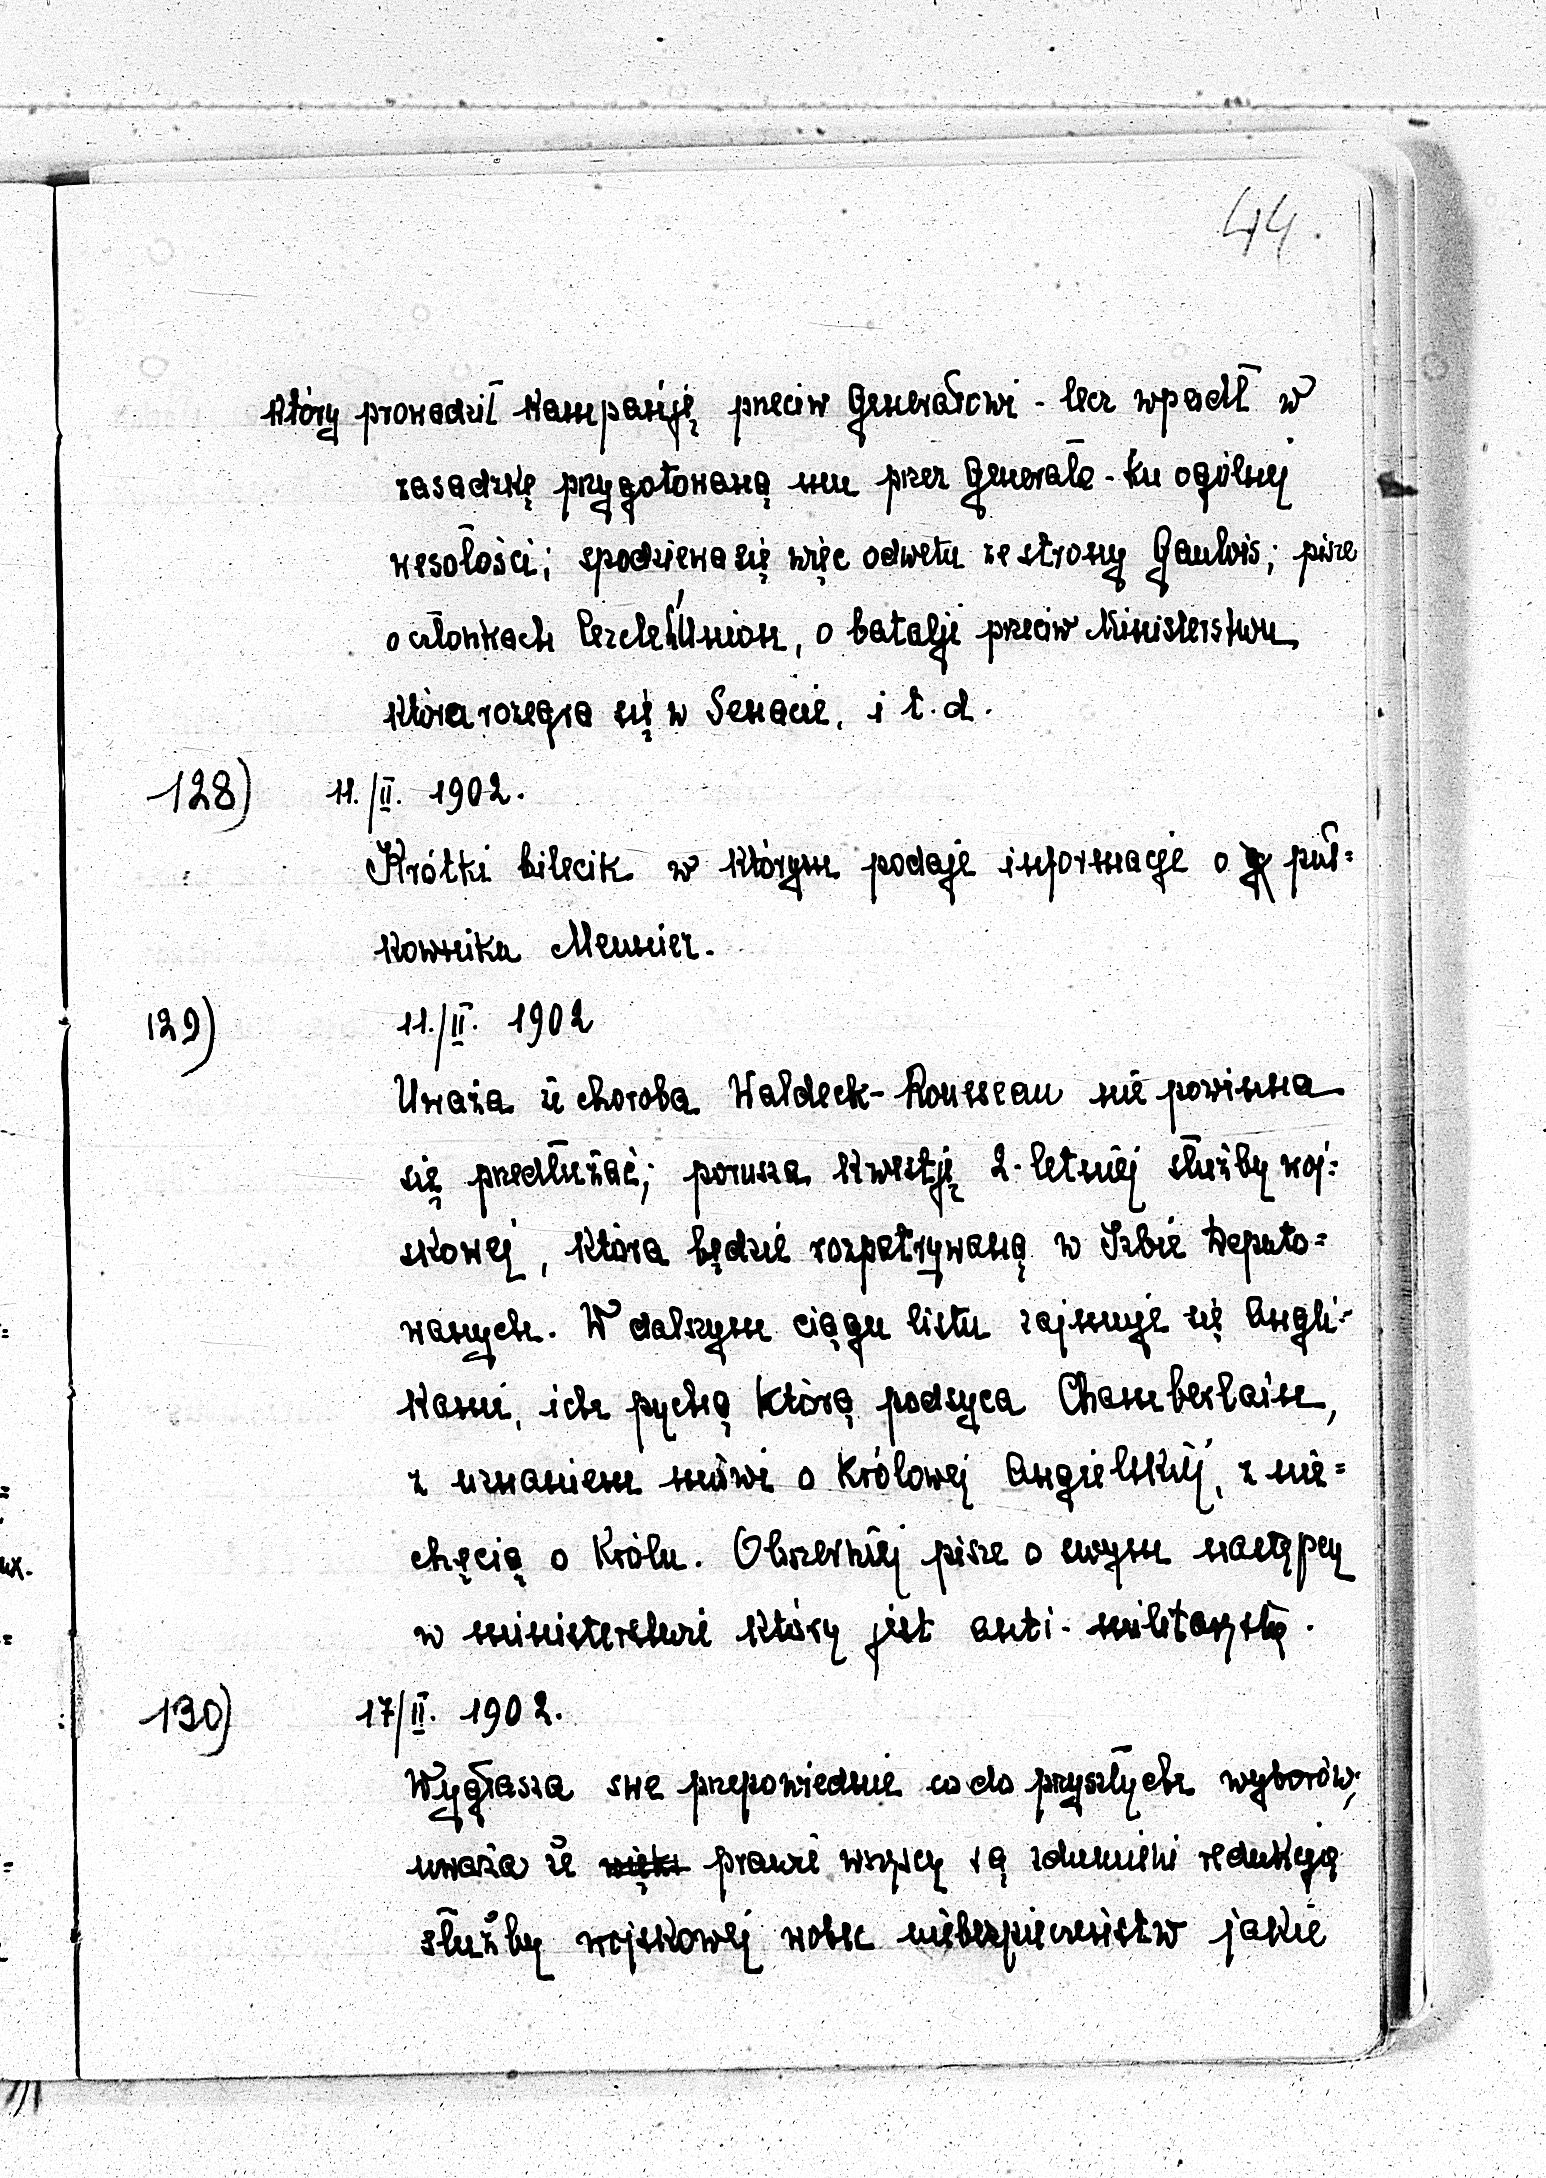 44.
który prowadził kampanję przeciw Generałowi - lecz wpadł w
zasadzkę przygotowaną mu przez Generała - ku ogólnej
wesołości; spodziewa się więc odwetu ze strony Gaulois; pisze
o członkach Cercle l'Union, o batalji przeciw Ministerstwu,
która rozegra się w Senacie, i t. d.
128) 11./II. 1902.
Krótki bilecik w którym podaje informacje o puł=
kownika Meunier.
129) 11./II. 1902
Uważa że choroba Waldeck-Rousseau nie powinna
się przedłużać; porusza kwestję 2-letniej służby woj=
skowej, która będzie rozpatrywaną w Izbie Deputo=
wanych. W dalszym ciągu listu zajmuje się Angli=
kami, ich pychą którą podsyca Chamberlain,
z uznaniem mówi o Królowej Angielskiej, z nie=
chęcią o Królu. Obszerniej pisze o swym następcy
w ministerstwie który jest anti-militarystą.
130) 17/II. 1902.
Wygłasza swe przepowiednie co do przyszłych wyborów;
uważa że prawie wszyscy są zdumieni redukcją
służby wojskowej wobec niebezpieczeństw jakie